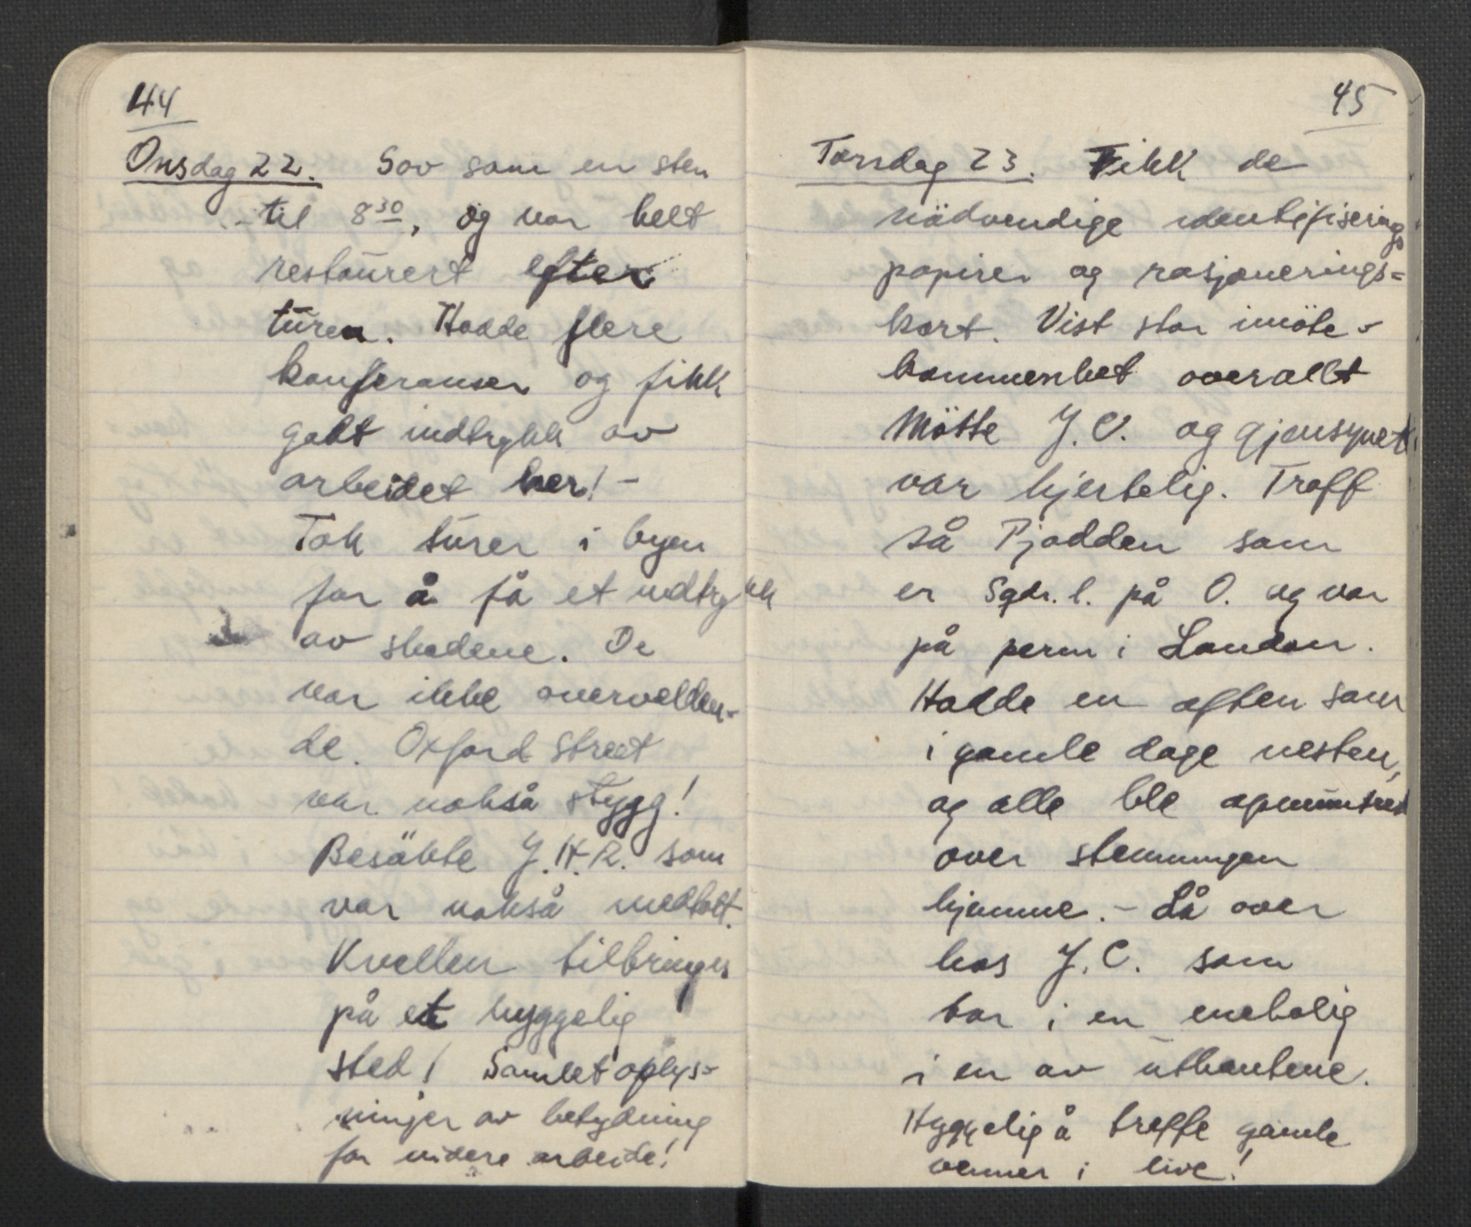 44
Onsdag 22. Sov som en sten
til 8³⁰, og var helt
restaurert efter
turen. Hadde flere
konferanser og fikk
godt indtrykk av
arbeidet her! -
Tok turer i byen
for å få et indtrykk
av skadene. De
var ikke overvelden-
de. Oxford Street
var nokså stygg!
Besökte J.H.R. som
var nokså medtatt.
Kvellen tilbringes
på et hyggelig
sted! Samlet oplys-
ninger av betydning
for videre arbeide!
45
Torsdag 23. Fikk de
nödvendige identifiserings
papirer og rasjonerings=
kort. Vist stor imöte-
kommenhet overallt
Mötte J.C. og gjensynet
var hjertelig. Traff
så Pjodden som
er Sqdr. l. på O. og var
på perm i London.
Hadde en aften som
i gamle dage nesten,
og alle ble opmuntret
over stemningen
hjemme. - Lå over
hos J.C. som
bor i en enebolig
i en av utkantene.
Hyggelig å treffe gamle
venner i live!